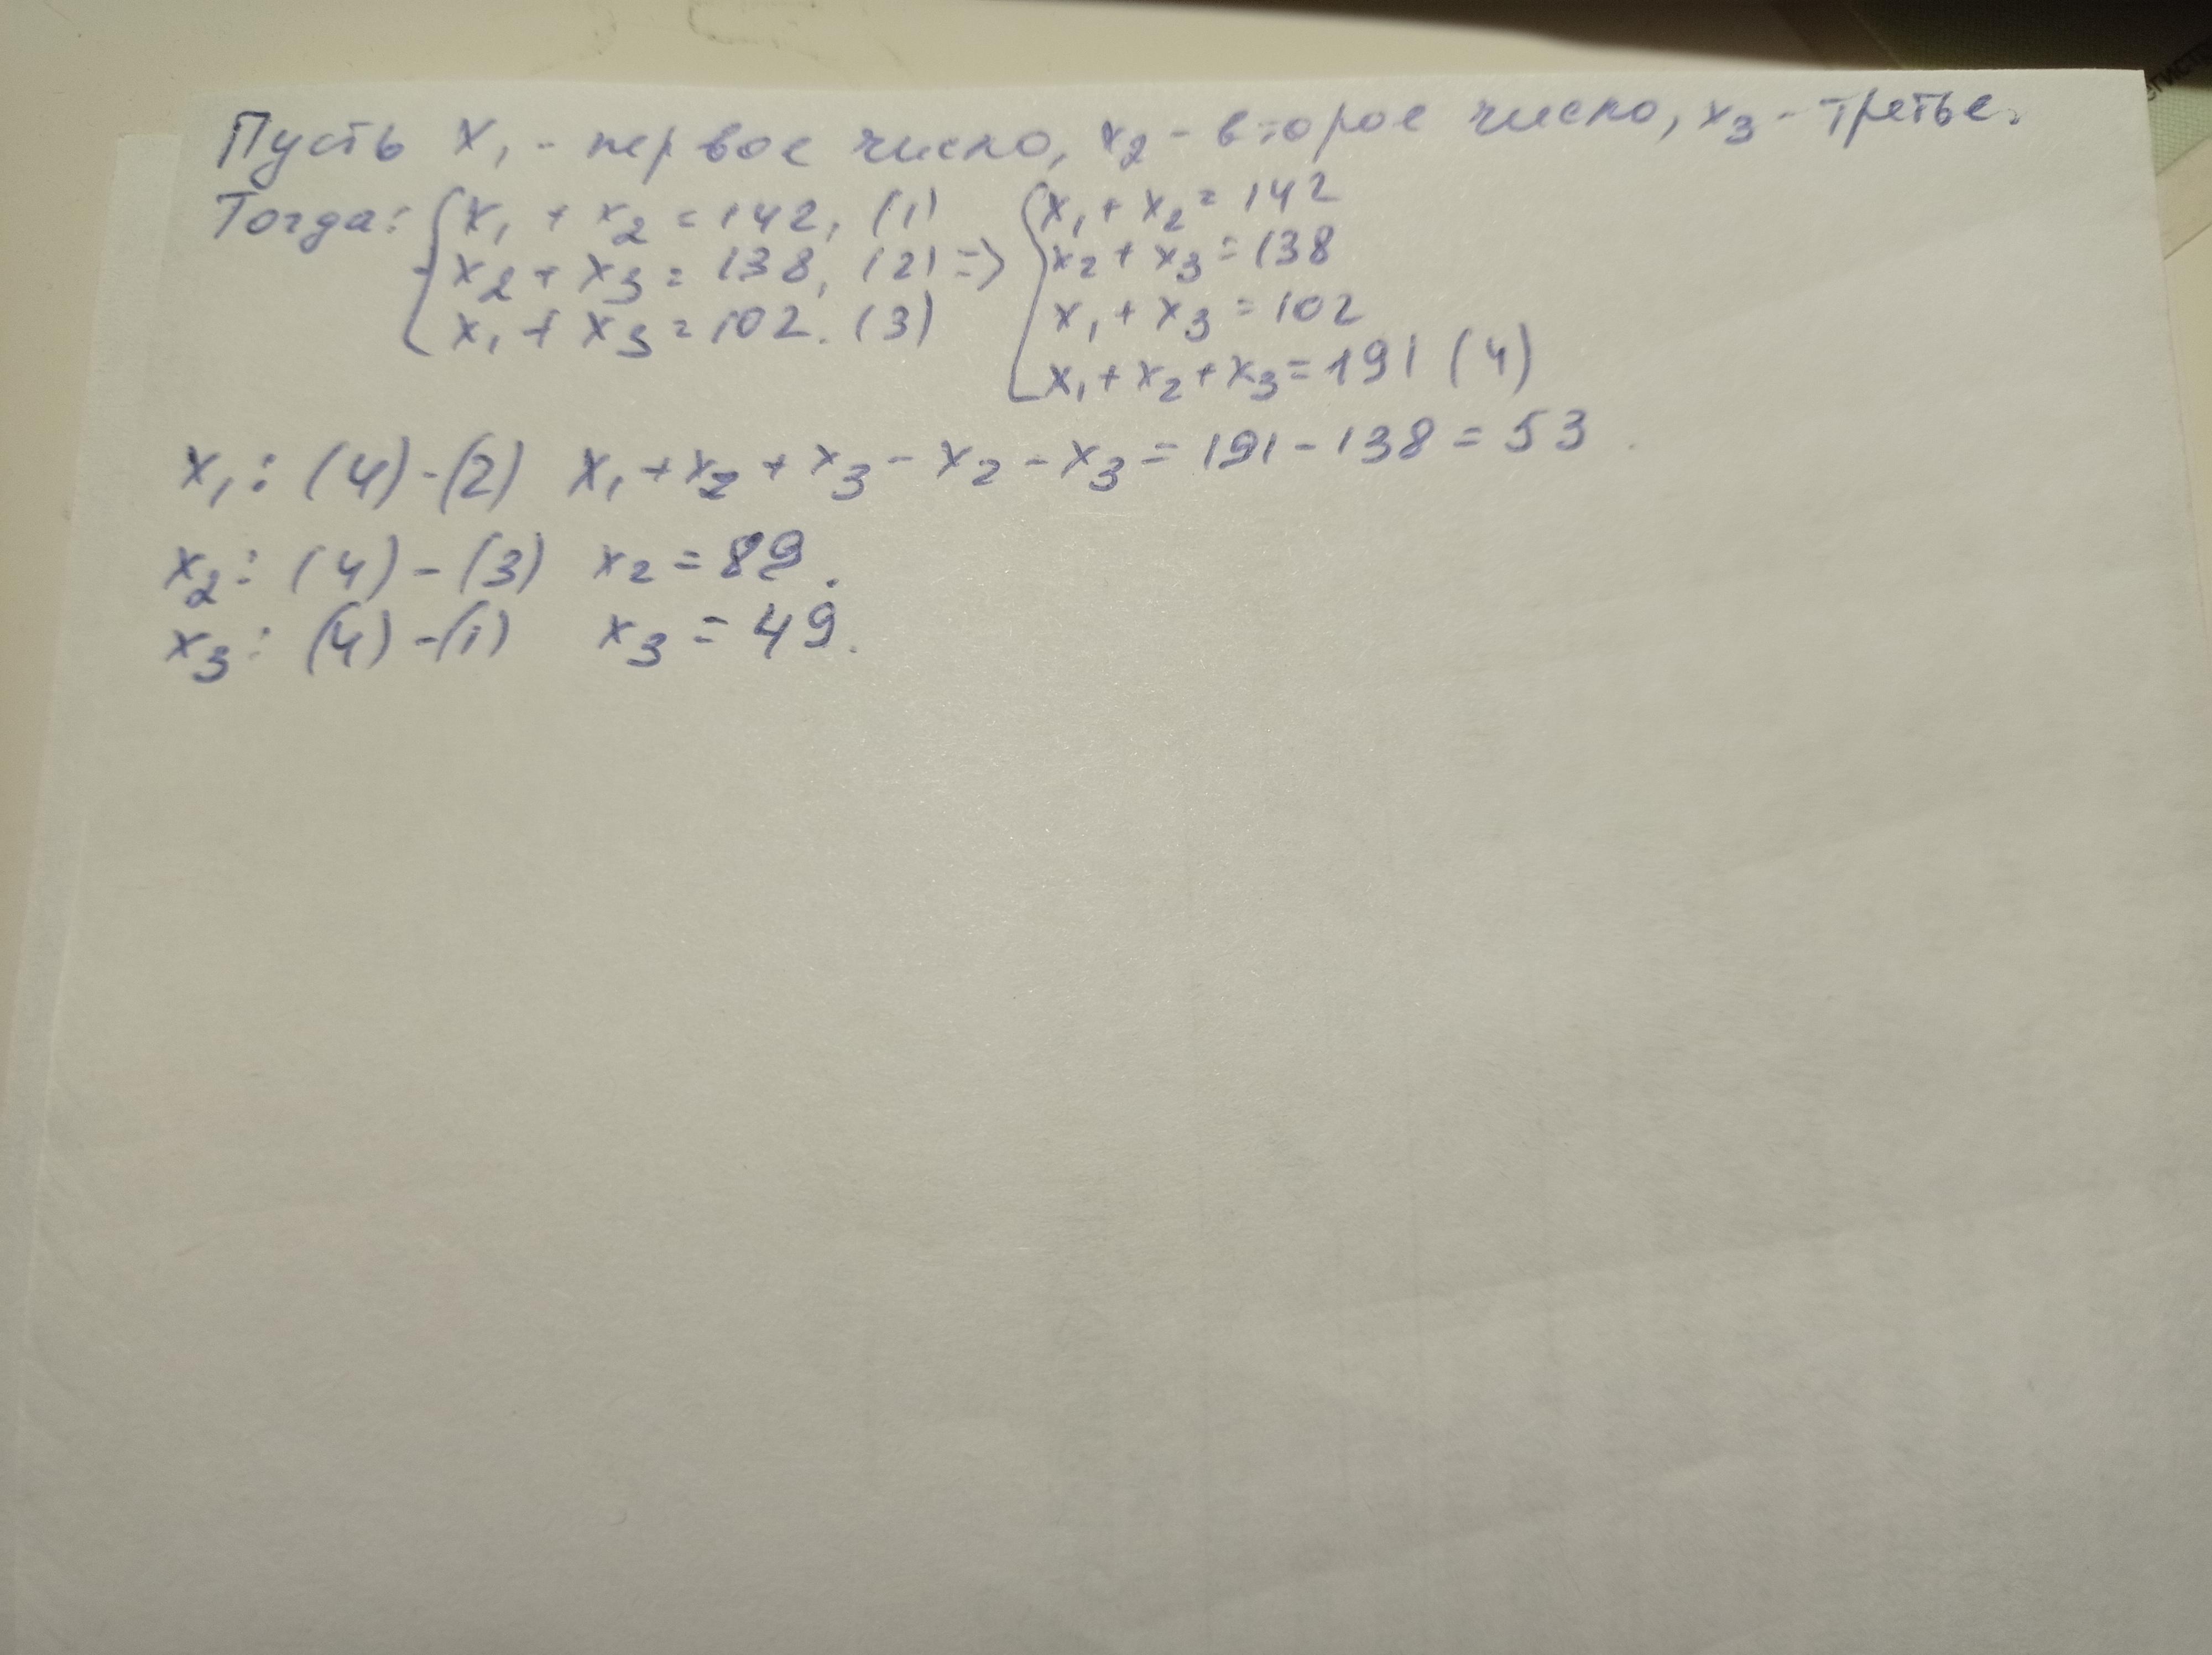 Пусть x₁ - первое число, x₂ - второе число, x₃ - третье.
Тогда: { x₁ + x₂ = 142, (1) { x₁ + x₂ = 142
x₂ + x₃ = 138, (2) => x₂ + x₃ = 138
x₁ + x₃ = 102. (3) x₁ + x₃ = 102
x₁ + x₂ + x₃ = 191 (4)
x₁: (4) - (2) x₁ + x₂ + x₃ - x₂ - x₃ = 191 - 138 = 53.
x₂: (4) - (3) x₂ = 89.
x₃: (4) - (1) x₃ = 49.